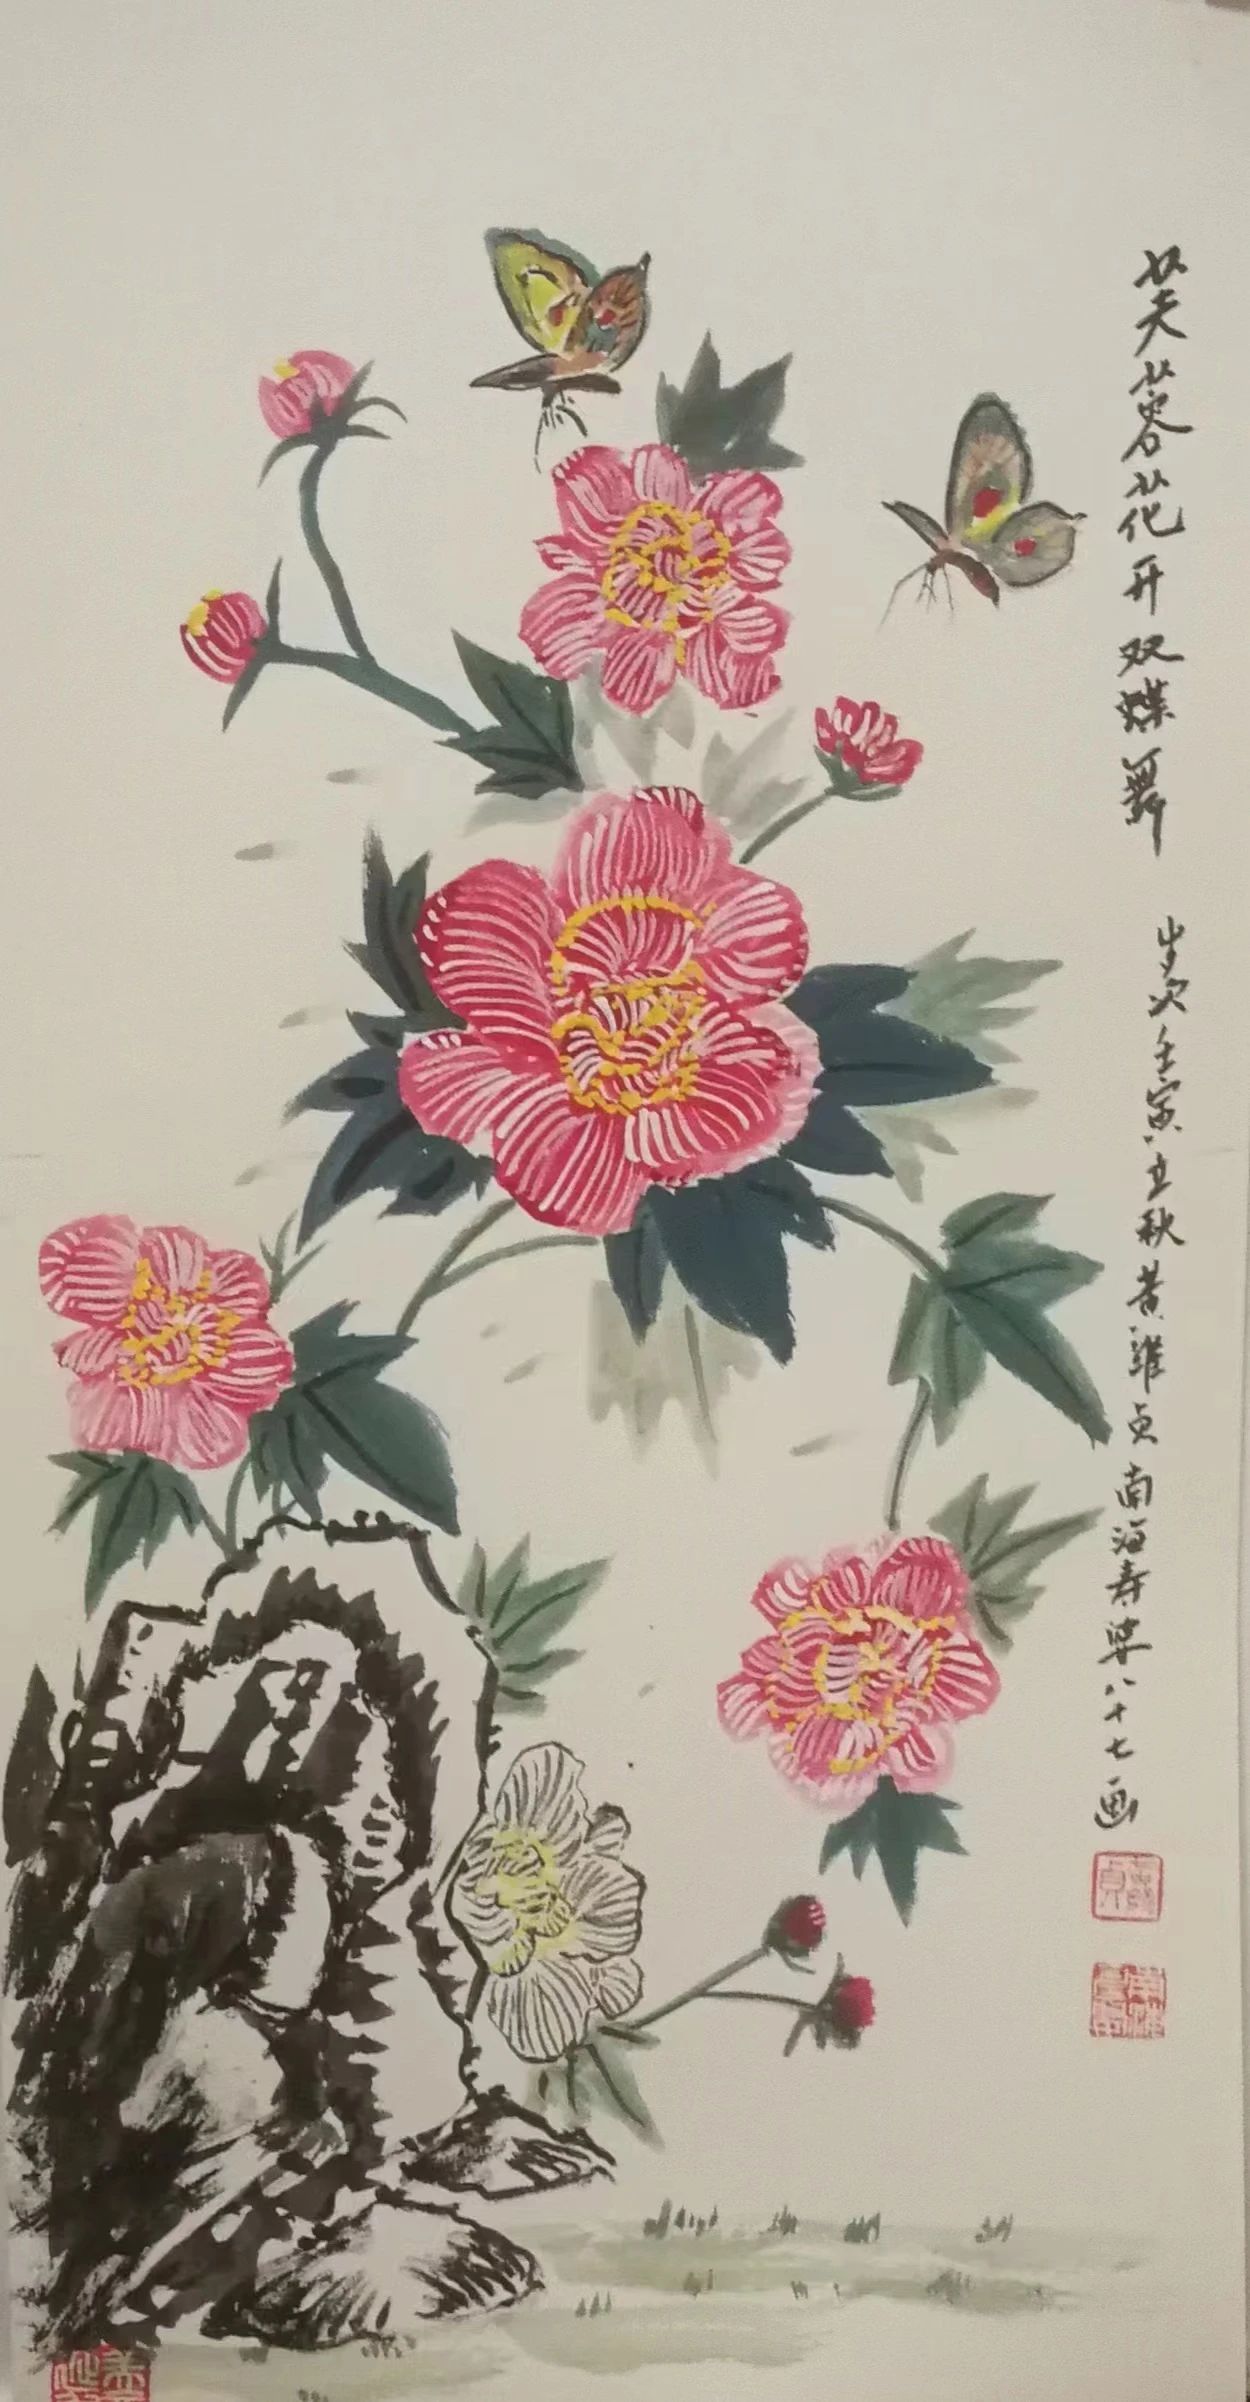 芙蓉花开双蝶舞 岁次壬寅立秋黄维贞南海寿登八十七画